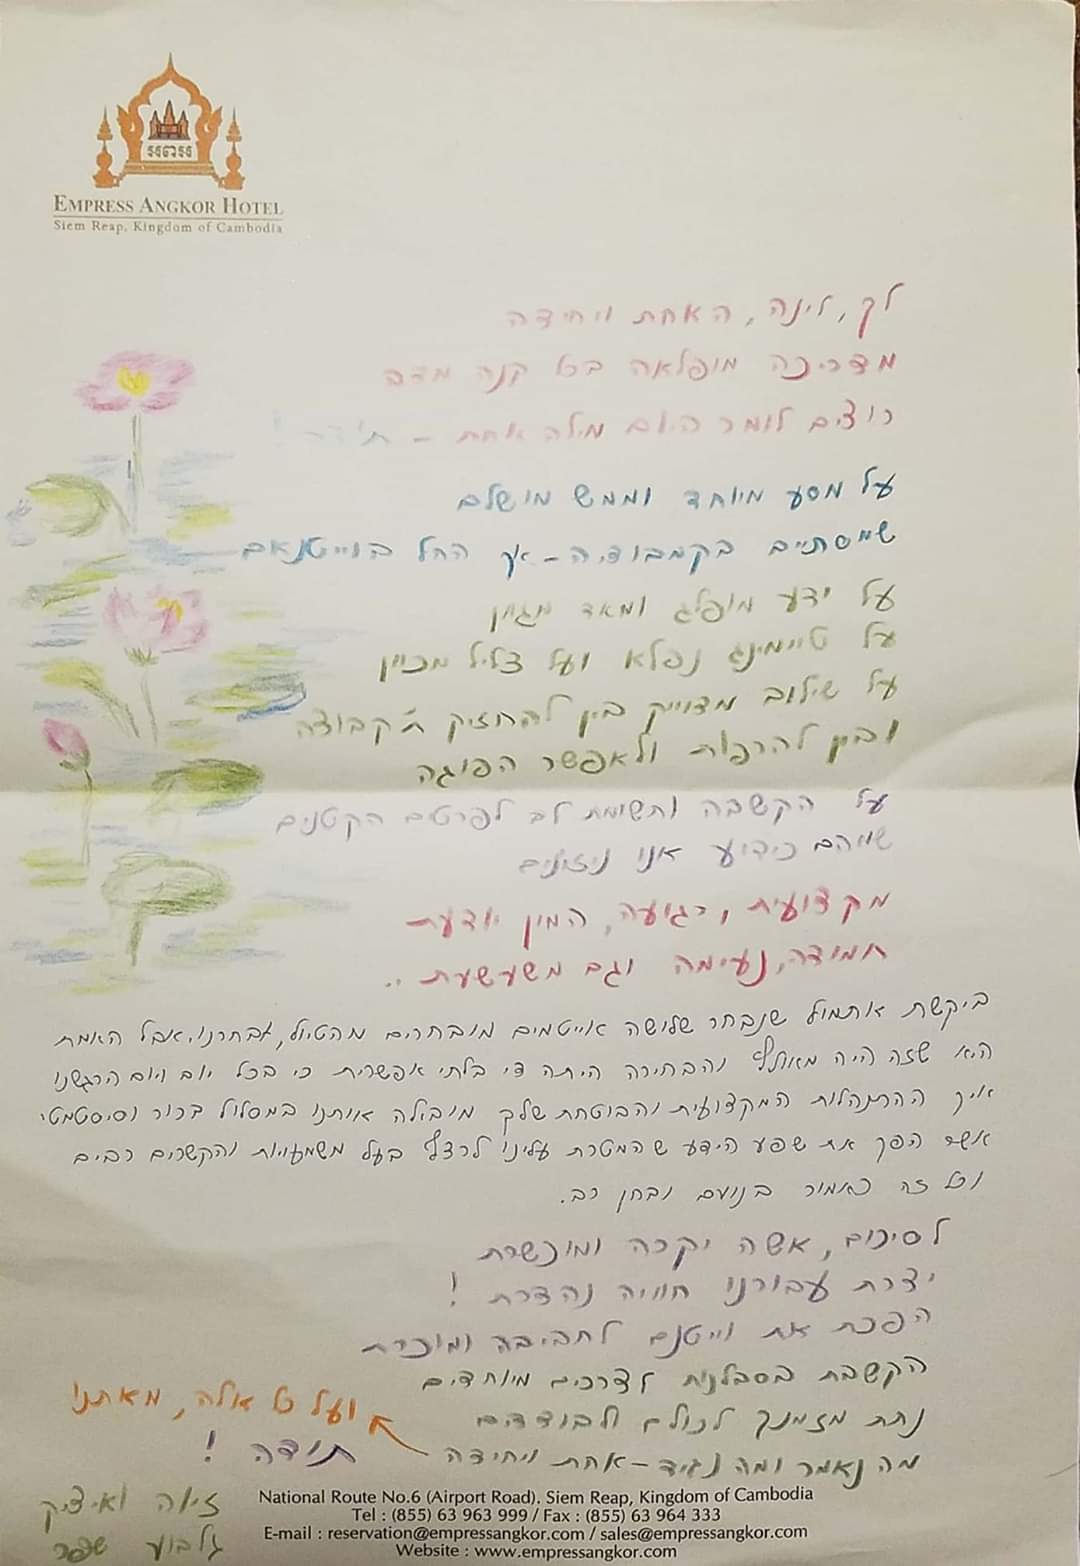 EMPRESS ANGKOR HOTEL
Siem Reap, Kingdom of Cambodia
לך, לינה, האחת ויחידה
מדריכה מופלאה בכל קנה מדה
רוצים לומר היום מילה אחת - תודה!
על מסע מיוחד וממש מושלם
שמסתיים בקמבודיה - אך החל בוייטנאם
על ידע מופלג ומאד מגוון
על טיימינג נפלא ועל צליל מכוון
על שילוב מדוייק בין להחזיק ת'קבוצה
ובין להרפות ולאפשר הפוגה
על הקשבה ותשומת לב לפרטים הקטנים
שמהם כידוע אנו ניזונים
מקצועית, רגועה, המון יודעת
חמודה, נעימה וגם משעשעת ..
ביקשת אתמול שנבחר שלושה אייטמים מובחרים מהטיול, ובחרנו. אבל האמת
היא שזה היה מאולץ והבחירה היתה די בלתי אפשרית כי בכל יום ויום הרגשנו
איך ההתנהלות המקצועית והבוטחת שלך מובילה אותנו במסלול ברור וסיסטמטי
אשר הפך את שפע הידע שהמטרת עלינו לרצף בעל משמעויות והקשרים רבים
וכל זה כאמור בנועם ובחן רב.
לסיכום, אשה יקרה ומוכשרת
יצרת עבורנו חוויה נהדרת!
הפכת את וייטנם לחביבה ומוכרת
הקשבת בסבלנות לצרכים מיוחדים
נתת מזמנך לכולם ולבודדים
מה נאמר ומה נגיד - אחת ויחידה
ועל כל אלה, מאתנו
תודה!
זיוה ואיציק
גלבוע שפר
National Route No.6 (Airport Road). Siem Reap, Kingdom of Cambodia
Tel : (855) 63 963 999 / Fax : (855) 63 964 333
E-mail : reservation@empressangkor.com / sales@empressangkor.com
Website : www.empressangkor.com